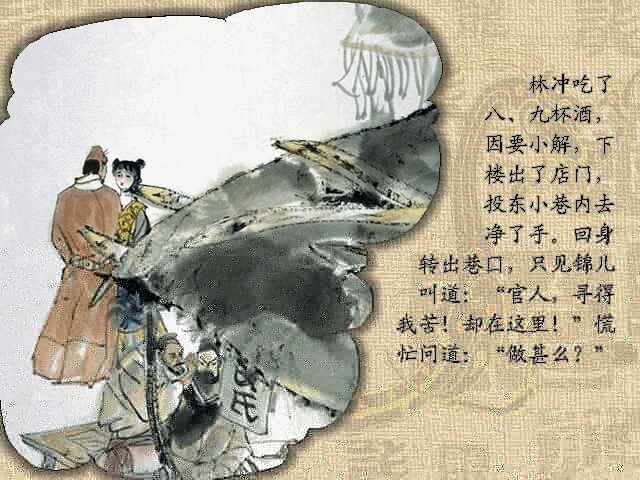 林冲吃了
八、九杯酒，
因要小解，下
楼出了店门，
投东小巷内去
净了手。回身
转出巷口，只见锦儿
叫道：“官人，寻得
我苦！却在这里！”慌
忙问道：“做甚么？”